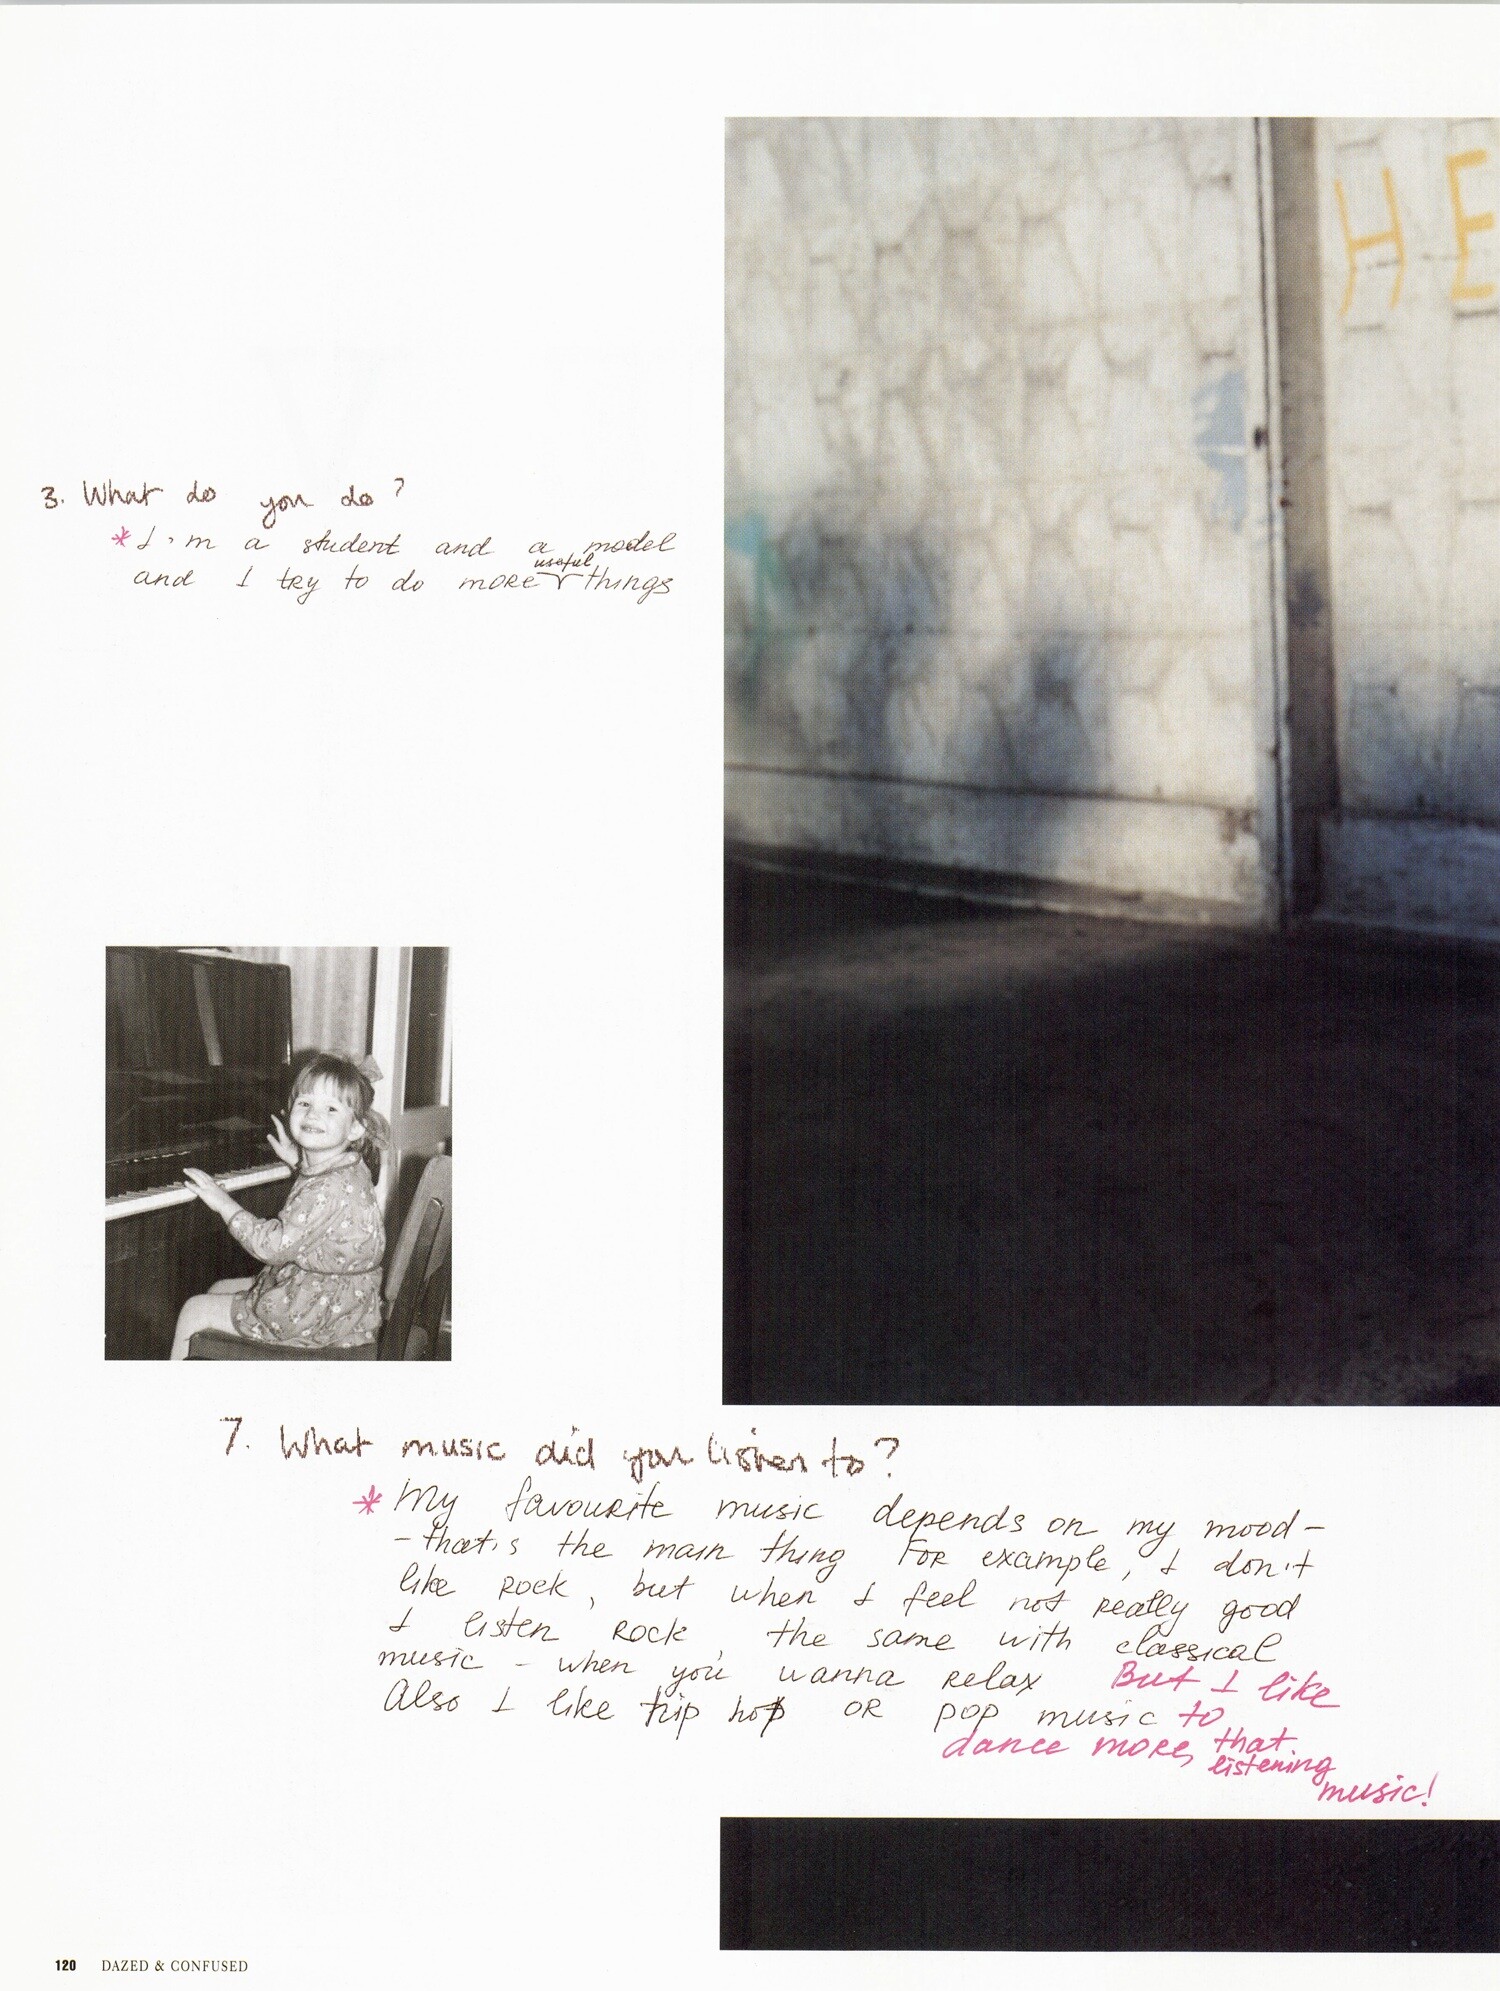 HE
3. What do you do?
* I'm a student and a model
and I try to do more useful things
7. What music did you listen to?
* My favourite music depends on my mood –
– that's the main thing For example, I don't
like Rock, but when I feel not really good
I listen Rock, the same with classical
music – when you wanna relax But I like
Also I like trip hop or pop music to
dance more, that
listening
music!
120 DAZED & CONFUSED